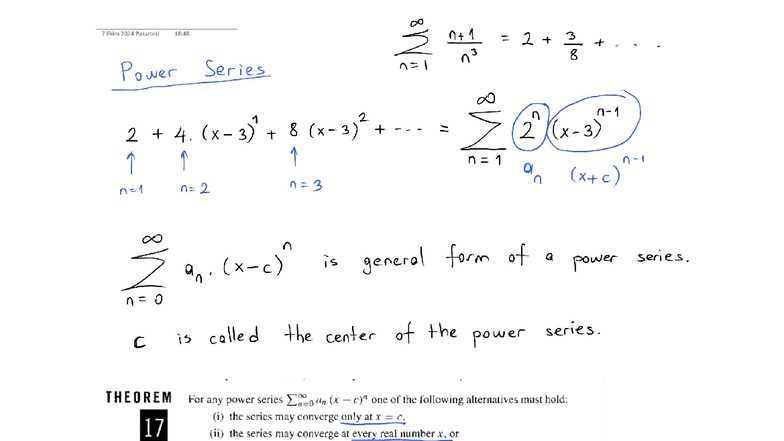 7 Ekim 2024 Pazartesi 18:48
∞ Σ n=1 n+1 / n³ = 2 + 3/8 + ....
Power Series
2 + 4.(x-3)¹ + 8 (x-3)² + ---- = ∞ Σ n=1 2ⁿ (x-3)ⁿ⁻¹
n=1 n=2 n=3 aₙ (x+c)ⁿ⁻¹
∞ Σ n=0 aₙ.(x-c)ⁿ is general form of a power series.
c is called the center of the power series.
THEOREM 17
For any power series Σ∞n=0 aₙ (x − c)ⁿ one of the following alternatives must hold:
(i) the series may converge only at x = c,
(ii) the series may converge at every real number x, or